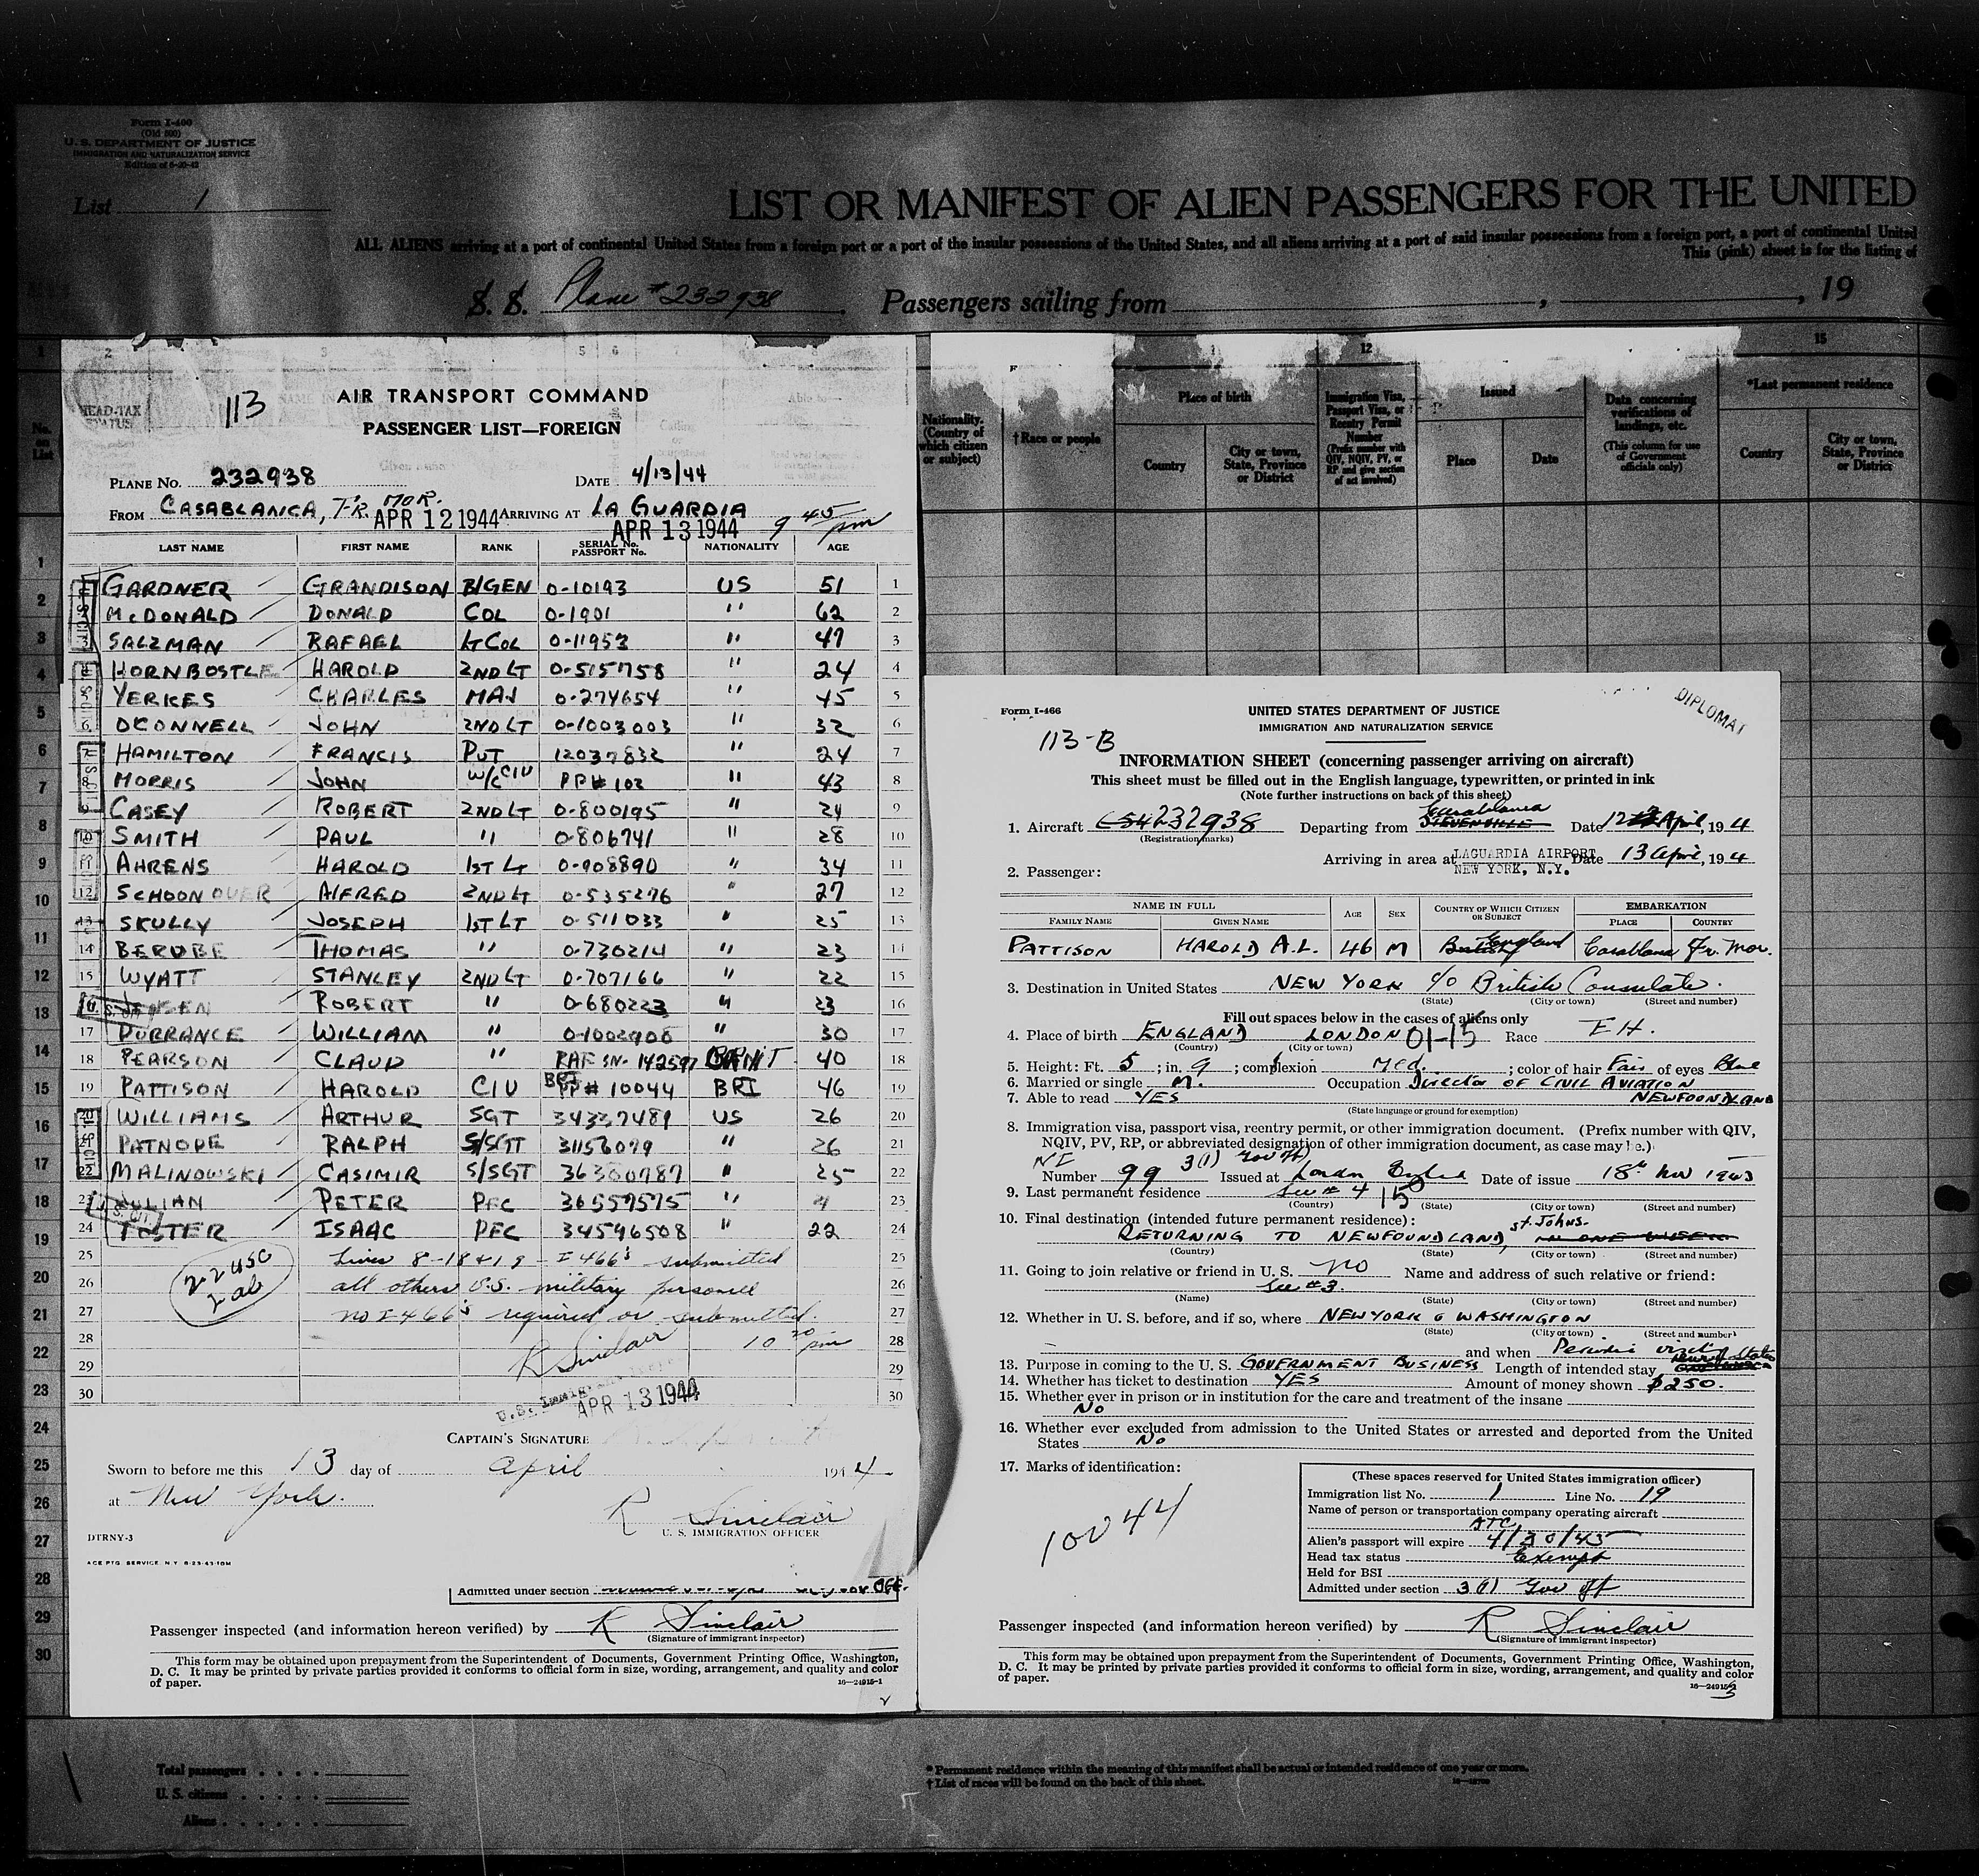 Form I-400
(Old 500)
U. S. DEPARTMENT OF JUSTICE
IMMIGRATION AND NATURALIZATION SERVICE
List 1
LIST OR MANIFEST OF ALIEN PASSENGERS FOR THE UNITED
ALL ALIENS arriving at a port of continental United States from a foreign port or a port of the insular possessions of the United States, and all aliens arriving at a port of said insular possessions from a foreign port, a port of continental United
This (pink) sheet is for the listing of
S. S. Plane # 232938 . Passengers sailing from , , 19
HEAD-TAX STATUS
113
AIR TRANSPORT COMMAND
PASSENGER LIST—FOREIGN
PLANE NO. 232938 DATE 4/13/44
FROM CASABLANCA, FR. MOR. APR 12 1944 ARRIVING AT LA GUARDIA APR 13 1944 9 45 pm
LAST NAME FIRST NAME RANK SERIAL No. PASSPORT No. NATIONALITY AGE
GARDNER GRANDISON B/GEN 0-10193 US 51 1
McDONALD DONALD COL 0-1901 " 62 2
SALZMAN RAFAEL LT COL 0-11953 " 47 3
HORNBOSTLE HAROLD 2ND LT 0-515758 " 24 4
YERKES CHARLES MAJ 0-274654 " 45 5
OCONNELL JOHN 2ND LT 0-1003003 " 32 6
HAMILTON FRANCIS PVT 12037832 " 24 7
MORRIS JOHN W/C CIV PP# 102 " 43 8
CASEY ROBERT 2ND LT 0-800195 " 24 9
10 SMITH PAUL " 0-806741 " 28 10
AHRENS HAROLD 1ST LT 0-908890 " 34 11
12 SCHOONOVER ALFRED 2ND LT 0-535276 " 27 12
SKULLY JOSEPH 1ST LT 0-511033 " 25 13
14 BERUBE THOMAS " 0-730214 " 23 14
15 WYATT STANLEY 2ND LT 0-707166 " 22 15
ROBERT " 0-680223 " 23 16
17 DURRANCE WILLIAM " 0-1002908 " 30 17
18 PEARSON CLAUD " RAF SN- 142597 BRIT 40 18
19 PATTISON HAROLD CIV BRI PP# 10044 BRI 46 19
20 WILLIAMS ARTHUR SGT 34337489 US 26 20
21 PATNODE RALPH S/SGT 31156079 " 26 21
22 MALINOWSKI CASIMIR S/SGT 36380787 " 25 22
23 JULIAN PETER PFC 36557575 " 23
24 FOSTER ISAAC PFC 34596508 " 22 24
25 Lines 8-18 & 19 - I 466's submitted 25
26 all others U.S. military personnel 26
27 no I 466's required or submitted. 27
28 R Sinclair 10 30 pm 28
29 29
30 APR 13 1944 30
CAPTAIN'S SIGNATURE
Sworn to before me this 13 day of April 1944
at New York.
R Sinclair
U. S. IMMIGRATION OFFICER
DTRNY-3
ACE PTG. SERVICE. N.Y. 8-23-43-10M
Admitted under section
Passenger inspected (and information hereon verified) by R Sinclair
(Signature of immigrant inspector)
This form may be obtained upon prepayment from the Superintendent of Documents, Government Printing Office, Washington,
D. C. It may be printed by private parties provided it conforms to official form in size, wording, arrangement, and quality and color
of paper.
16—24915-1
Nationality. (Country of which citizen or subject)
†Race or people
Place of birth
Country
City or town, State, Province or District
12
Immigration Visa, Passport Visa, or Reentry Permit Number
(Prefix number with QIV, NQIV, PV, or RP and give section of act involved)
Issued
Place
Date
Data concerning verifications of landings, etc.
(This column for use of Government officials only)
15
*Last permanent residence
Country
City or town, State, Province or District
Form I-466
113-B
UNITED STATES DEPARTMENT OF JUSTICE
IMMIGRATION AND NATURALIZATION SERVICE
DIPLOMAT
INFORMATION SHEET (concerning passenger arriving on aircraft)
This sheet must be filled out in the English language, typewritten, or printed in ink
(Note further instructions on back of this sheet)
1. Aircraft C54 232938 Departing from Casablanca STEVENVILLE Date 12 April, 1944
(Registration marks)
Arriving in area at LAGUARDIA AIRPORT NEW YORK, N.Y. Date 13 April, 1944
2. Passenger:
NAME IN FULL AGE SEX COUNTRY OF WHICH CITIZEN OR SUBJECT EMBARKATION
FAMILY NAME GIVEN NAME PLACE COUNTRY
PATTISON HAROLD A.L. 46 M England Casablanca Fr. Mor.
3. Destination in United States NEW YORK c/o British Consulate.
(State) (City or town) (Street and number)
Fill out spaces below in the cases of aliens only
4. Place of birth ENGLAND LONDON 01-15 Race EH.
(Country) (City or town)
5. Height: Ft. 5 ; in. 9 ; complexion Med. ; color of hair Fair of eyes Blue
6. Married or single M. Occupation Director OF CIVIL AVIATION
7. Able to read YES NEWFOUNDLAND
(State language or ground for exemption)
8. Immigration visa, passport visa, reentry permit, or other immigration document. (Prefix number with QIV,
NQIV, PV, RP, or abbreviated designation of other immigration document, as case may be.)
NI
Number 99 3(1) Gov Off Issued at London England Date of issue 18th Nov 1943
9. Last permanent residence See # 4 15
(Country) (State) (City or town) (Street and number)
10. Final destination (intended future permanent residence):
RETURNING TO NEWFOUNDLAND, St. Johns. IN ONE WEEK
(Country) (State) (City or town) (Street and number)
11. Going to join relative or friend in U. S. NO Name and address of such relative or friend:
See #3.
(Name) (State) (City or town) (Street and number)
12. Whether in U. S. before, and if so, where NEW YORK & WASHINGTON
(State) (City or town) (Street and number)
and when Periodic visits
13. Purpose in coming to the U. S. GOVERNMENT BUSINESS Length of intended stay
14. Whether has ticket to destination YES Amount of money shown $250.
15. Whether ever in prison or in institution for the care and treatment of the insane
No
16. Whether ever excluded from admission to the United States or arrested and deported from the United
States No
17. Marks of identification:
10044
(These spaces reserved for United States immigration officer)
Immigration list No. 1 Line No. 19
Name of person or transportation company operating aircraft
ATC
Alien's passport will expire 4/30/45
Head tax status Exempt
Held for BSI
Admitted under section 3(1) Gov Off
Passenger inspected (and information hereon verified) by R Sinclair
(Signature of immigrant inspector)
This form may be obtained upon prepayment from the Superintendent of Documents, Government Printing Office, Washington,
D. C. It may be printed by private parties provided it conforms to official form in size, wording, arrangement, and quality and color
of paper.
16—24915-1
Total passengers
U. S. citizens
Aliens
* Permanent residence within the meaning of this manifest shall be actual or intended residence of one year or more.
† List of races will be found on the back of this sheet.